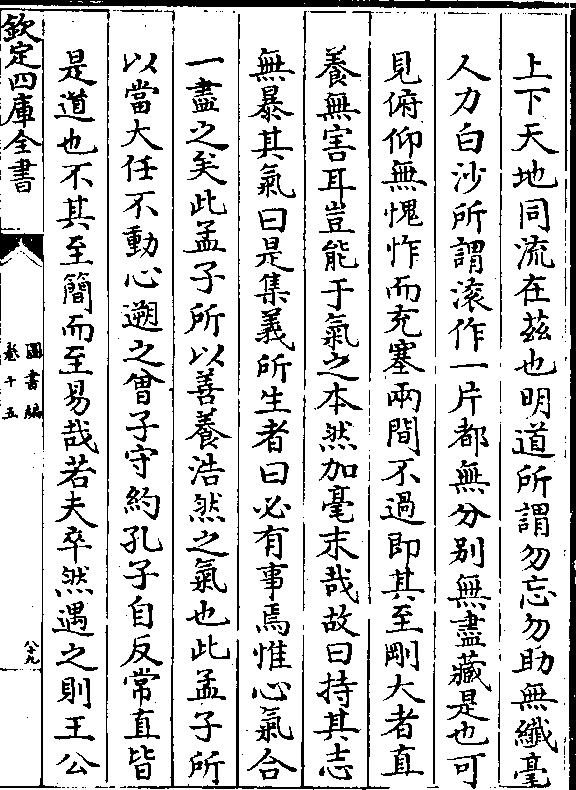 上下天地同流在茲也明道所謂勿忘勿助無纖毫
人力白沙所謂滾作一片都無分别無盡藏是也可
見俯仰無愧怍而充塞兩間不過即其至剛大者直
養無害耳豈能于氣之本然加毫末哉故曰持其志
無暴其氣曰是集義所生者曰必有事焉惟心氣合
一盡之矣此孟子所以善養浩然之氣也此孟子所
以當大任不動心遡之曾子守約孔子自反常直皆
是道也不其至簡而至易哉若夫卒然遇之則王公
欽定四庫全書
圖書編
卷十五
八十九